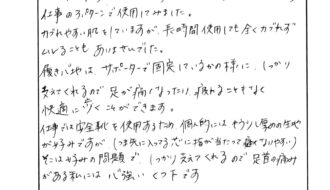 仕事の3パターンで使用してみました。
カブれやすい肌をしていますが、長時間使用しても全くカブれず
ムレることも ありませんでした。
履き心地は、サポーターで固定しているかの様に、しっかり
支えてくれるので 足が痛くなったり、疲れることもなく
快適に歩くことができます。
仕事では安全靴を使用するため 個人的には もう少し厚めの生地
が好みですが (つま先に入ってる芯に指が当たって痛くなりやすい)
そこは好みの問題で、しっかり支えてくれるので 足首の痛み
がある私には 心強い くつ下です